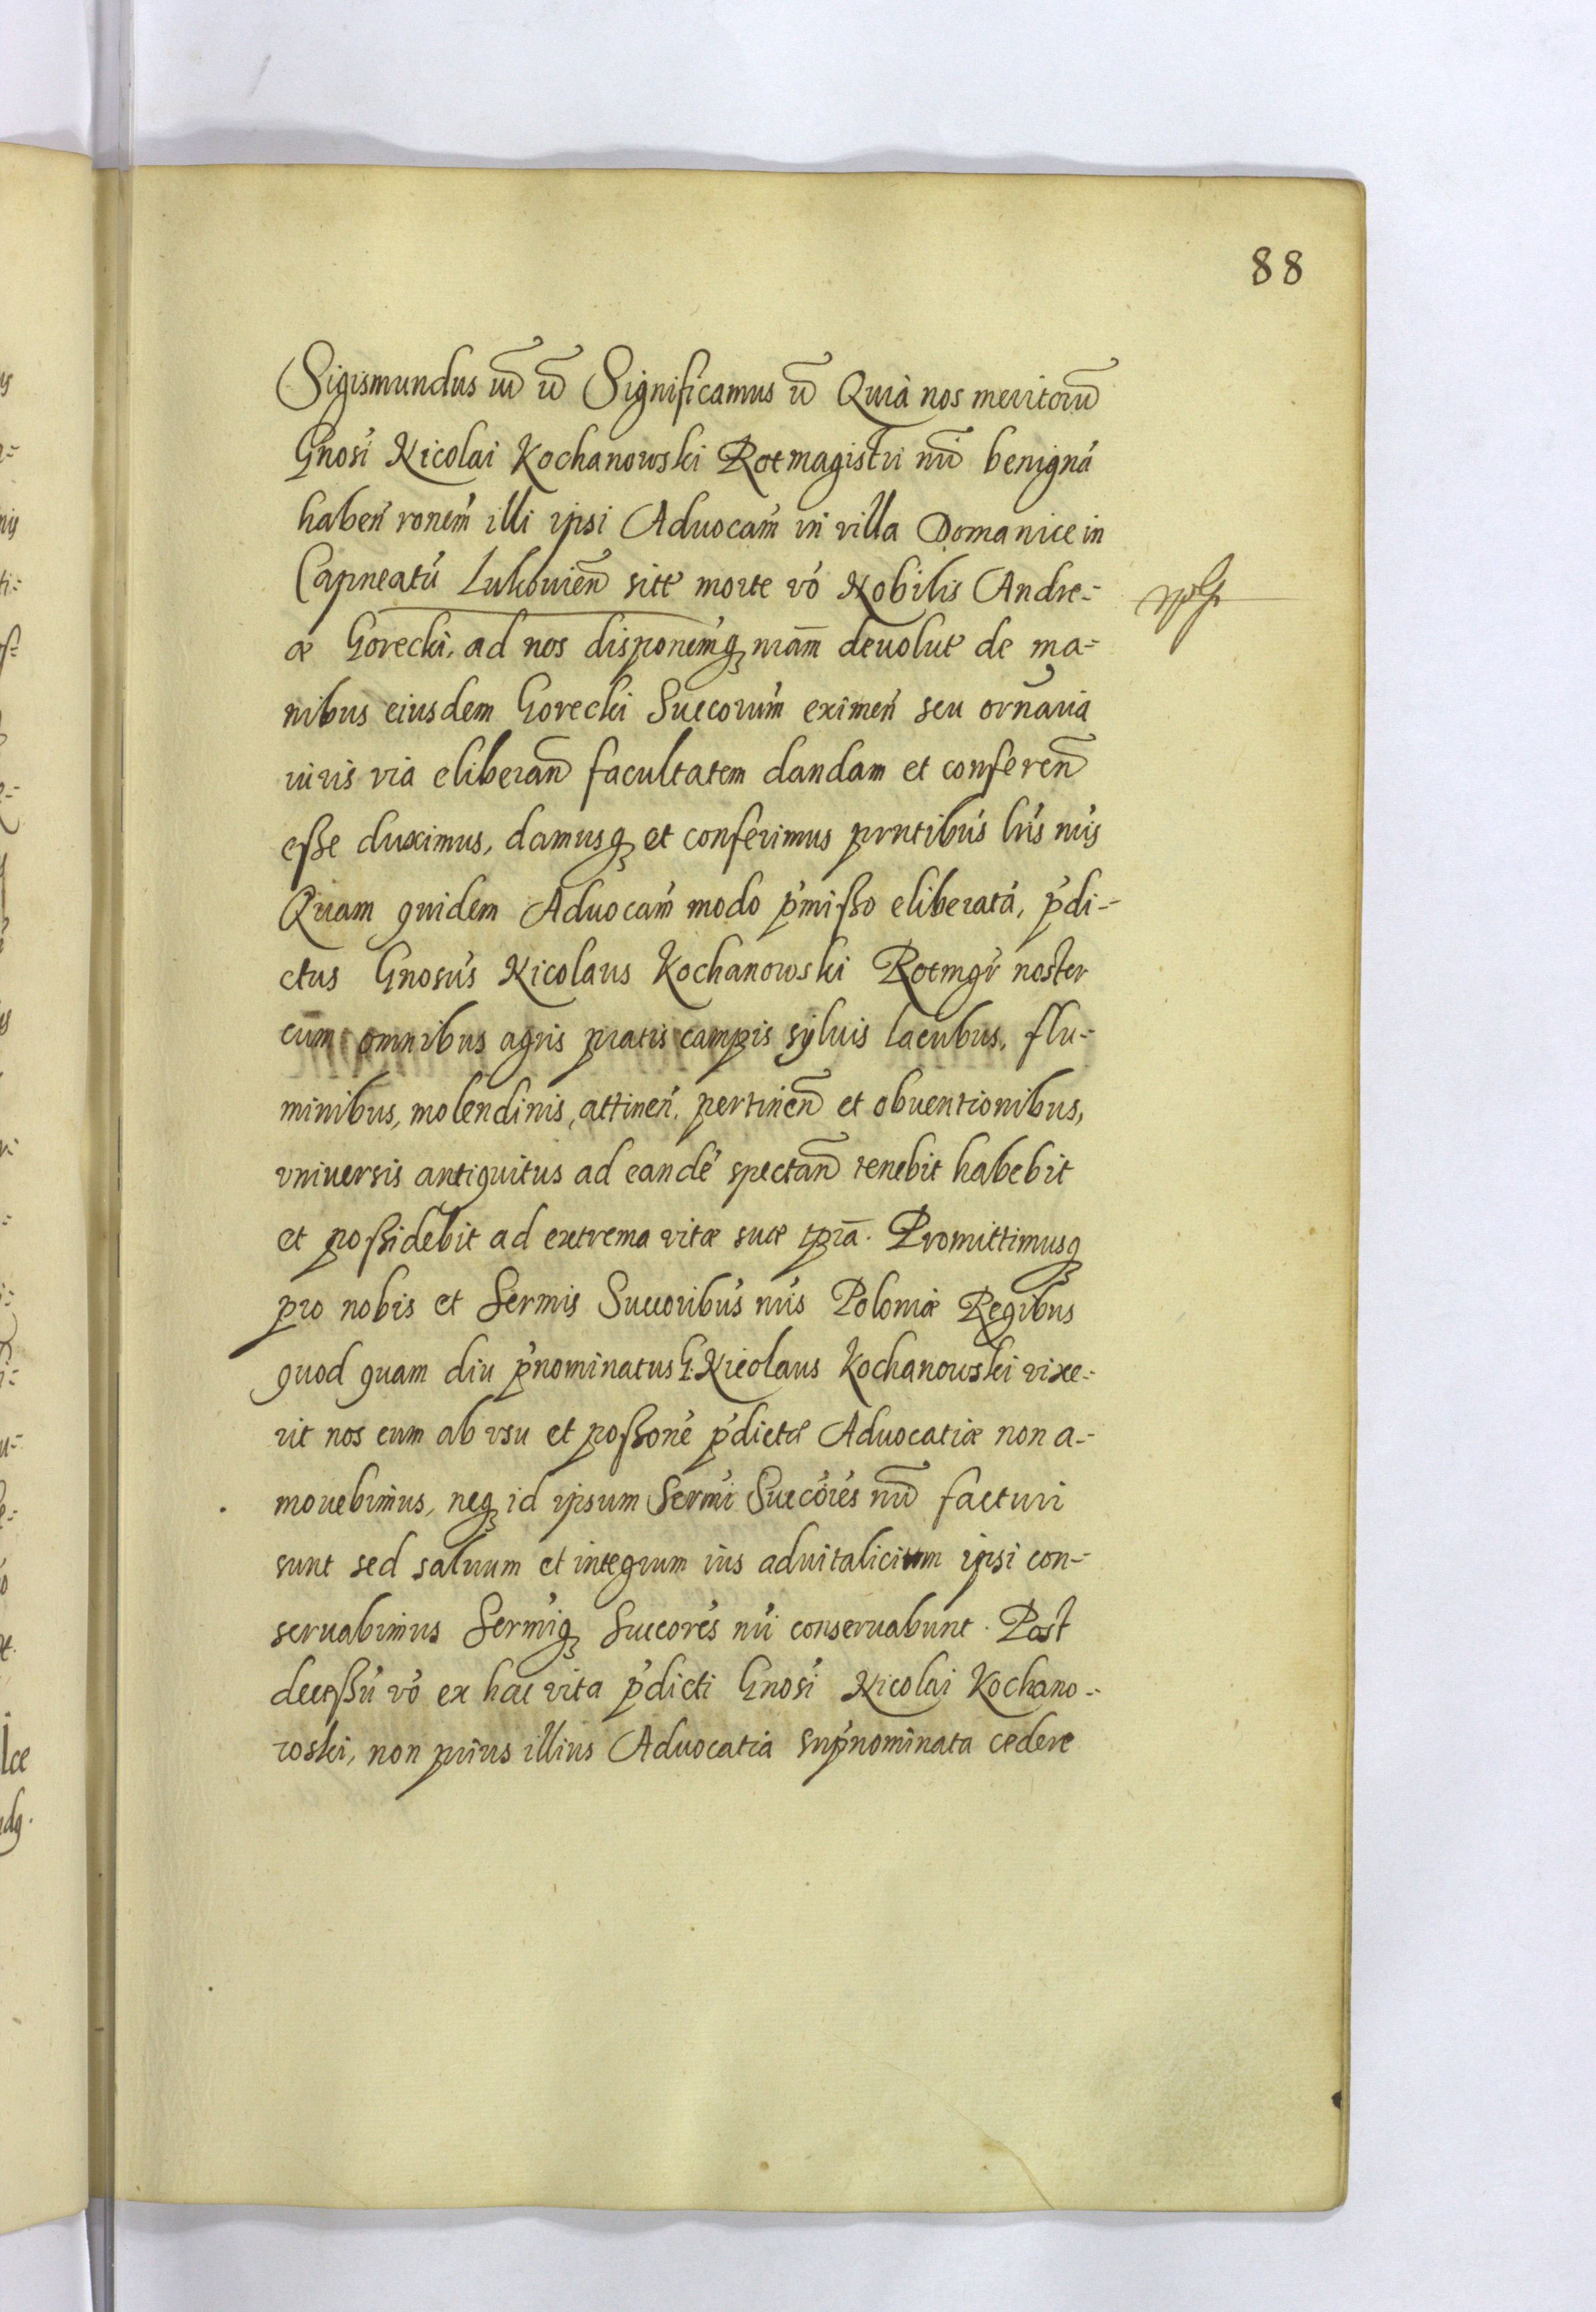 88
Sigismundus iii etc Significamus etc Quià nos meritorū
Gnosi Nicolai Kochanowski Rotmagistri nři benigná
habeń ronem̃ illi ipsi Aduocam̃ in villa Domanice in
Capneatú Lukouieñ sitt morte vó Nobilis Andre-
æ Gorecki, ad nos disponem̃q; nram̃ deuolut de ma-
nibus eiusdem Gorecki Succorum̃ eximeń seu ornaria
iuris via eliberañ facultatem dandam et confereñ
esse duximus, damusq; et conferimus prntibus lris nris
Quam quidem Aduocam̃ modo p'misso eliberatá, p'di-
ctus Gnosus Nicolaus Kochanowski Rotmgr noster
cum omnibus agris pratis campis syluis lacubus, flu-
minibus, molendinis, attineń, pertineñ et obuentionibus,
vniuersis antiquitus ad eandé spectañ tenebit habebit
et possidebit ad extrema vitæ suæ tpra. Promittimusq;
pro nobis et Sermis Succoribus nris Poloniæ Regibus
quod quam diu p'nominatus G. Nicolaus Kochanowski vixe-
rit nos eum ab vsu et possoné p'dictæ Aduocatiæ non a-
mouebimus, neq; id ipsum Sermi Succores nri facturi
sunt sed saluum et integrum ius aduitalicium ipsi con-
seruabimus Sermiq; Succores nri conseruabunt. Post
decessú vó ex hac vita p'dicti Gnosi Nicolai Kochano-
wski, non prius illius Aduocatia sup'nominata cedere